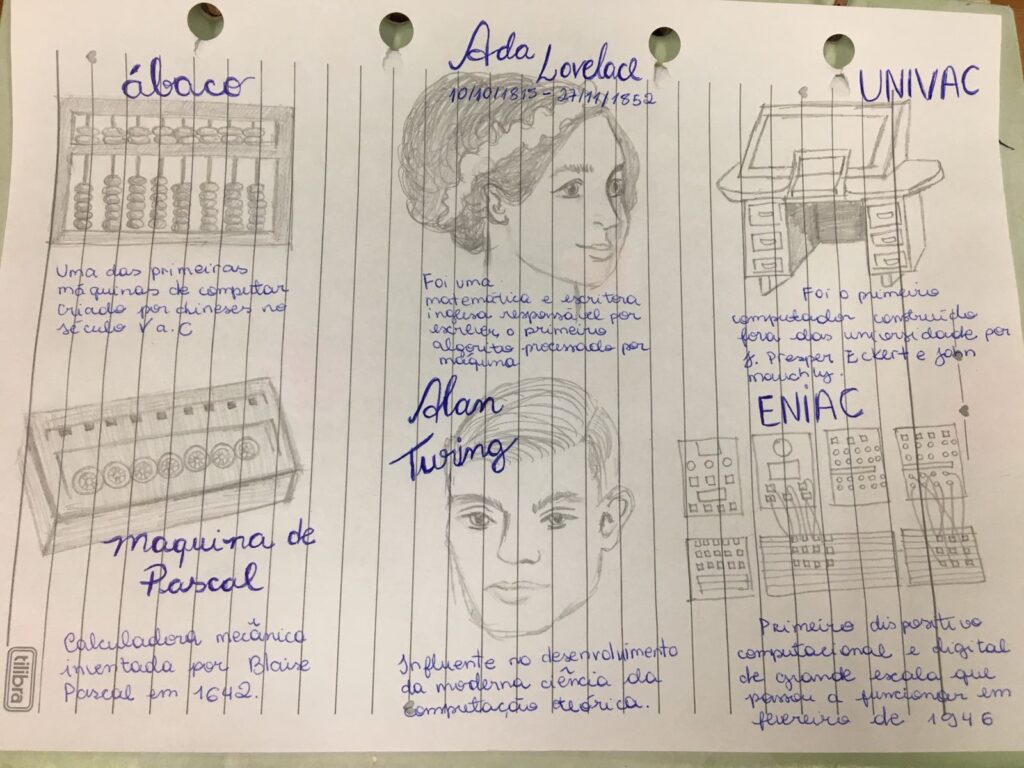 ábaco
Uma das primeiras
máquinas de computar
criado por chineses no
século V a.C
Maquina de
Pascal
Calculadora mecânica
inventada por Blaise
Pascal em 1642.
tilibra
Ada
Lovelace
10/10/1815 - 27/11/1852
Foi uma
matemática e escritora
inglesa responsável por
escrever o primeiro
algorito processado por
máquina
Alan
Turing
Influente no desenvolvimento
da moderna ciência da
computação teórica.
UNIVAC
Foi o primeiro
computador construído
fora das universidade por
J. Presper Eckert e John
Mauchly.
ENIAC
Primeiro dispositivo
computacional e digital
de grande escala que
passou a funcionar em
fevereiro de 1946